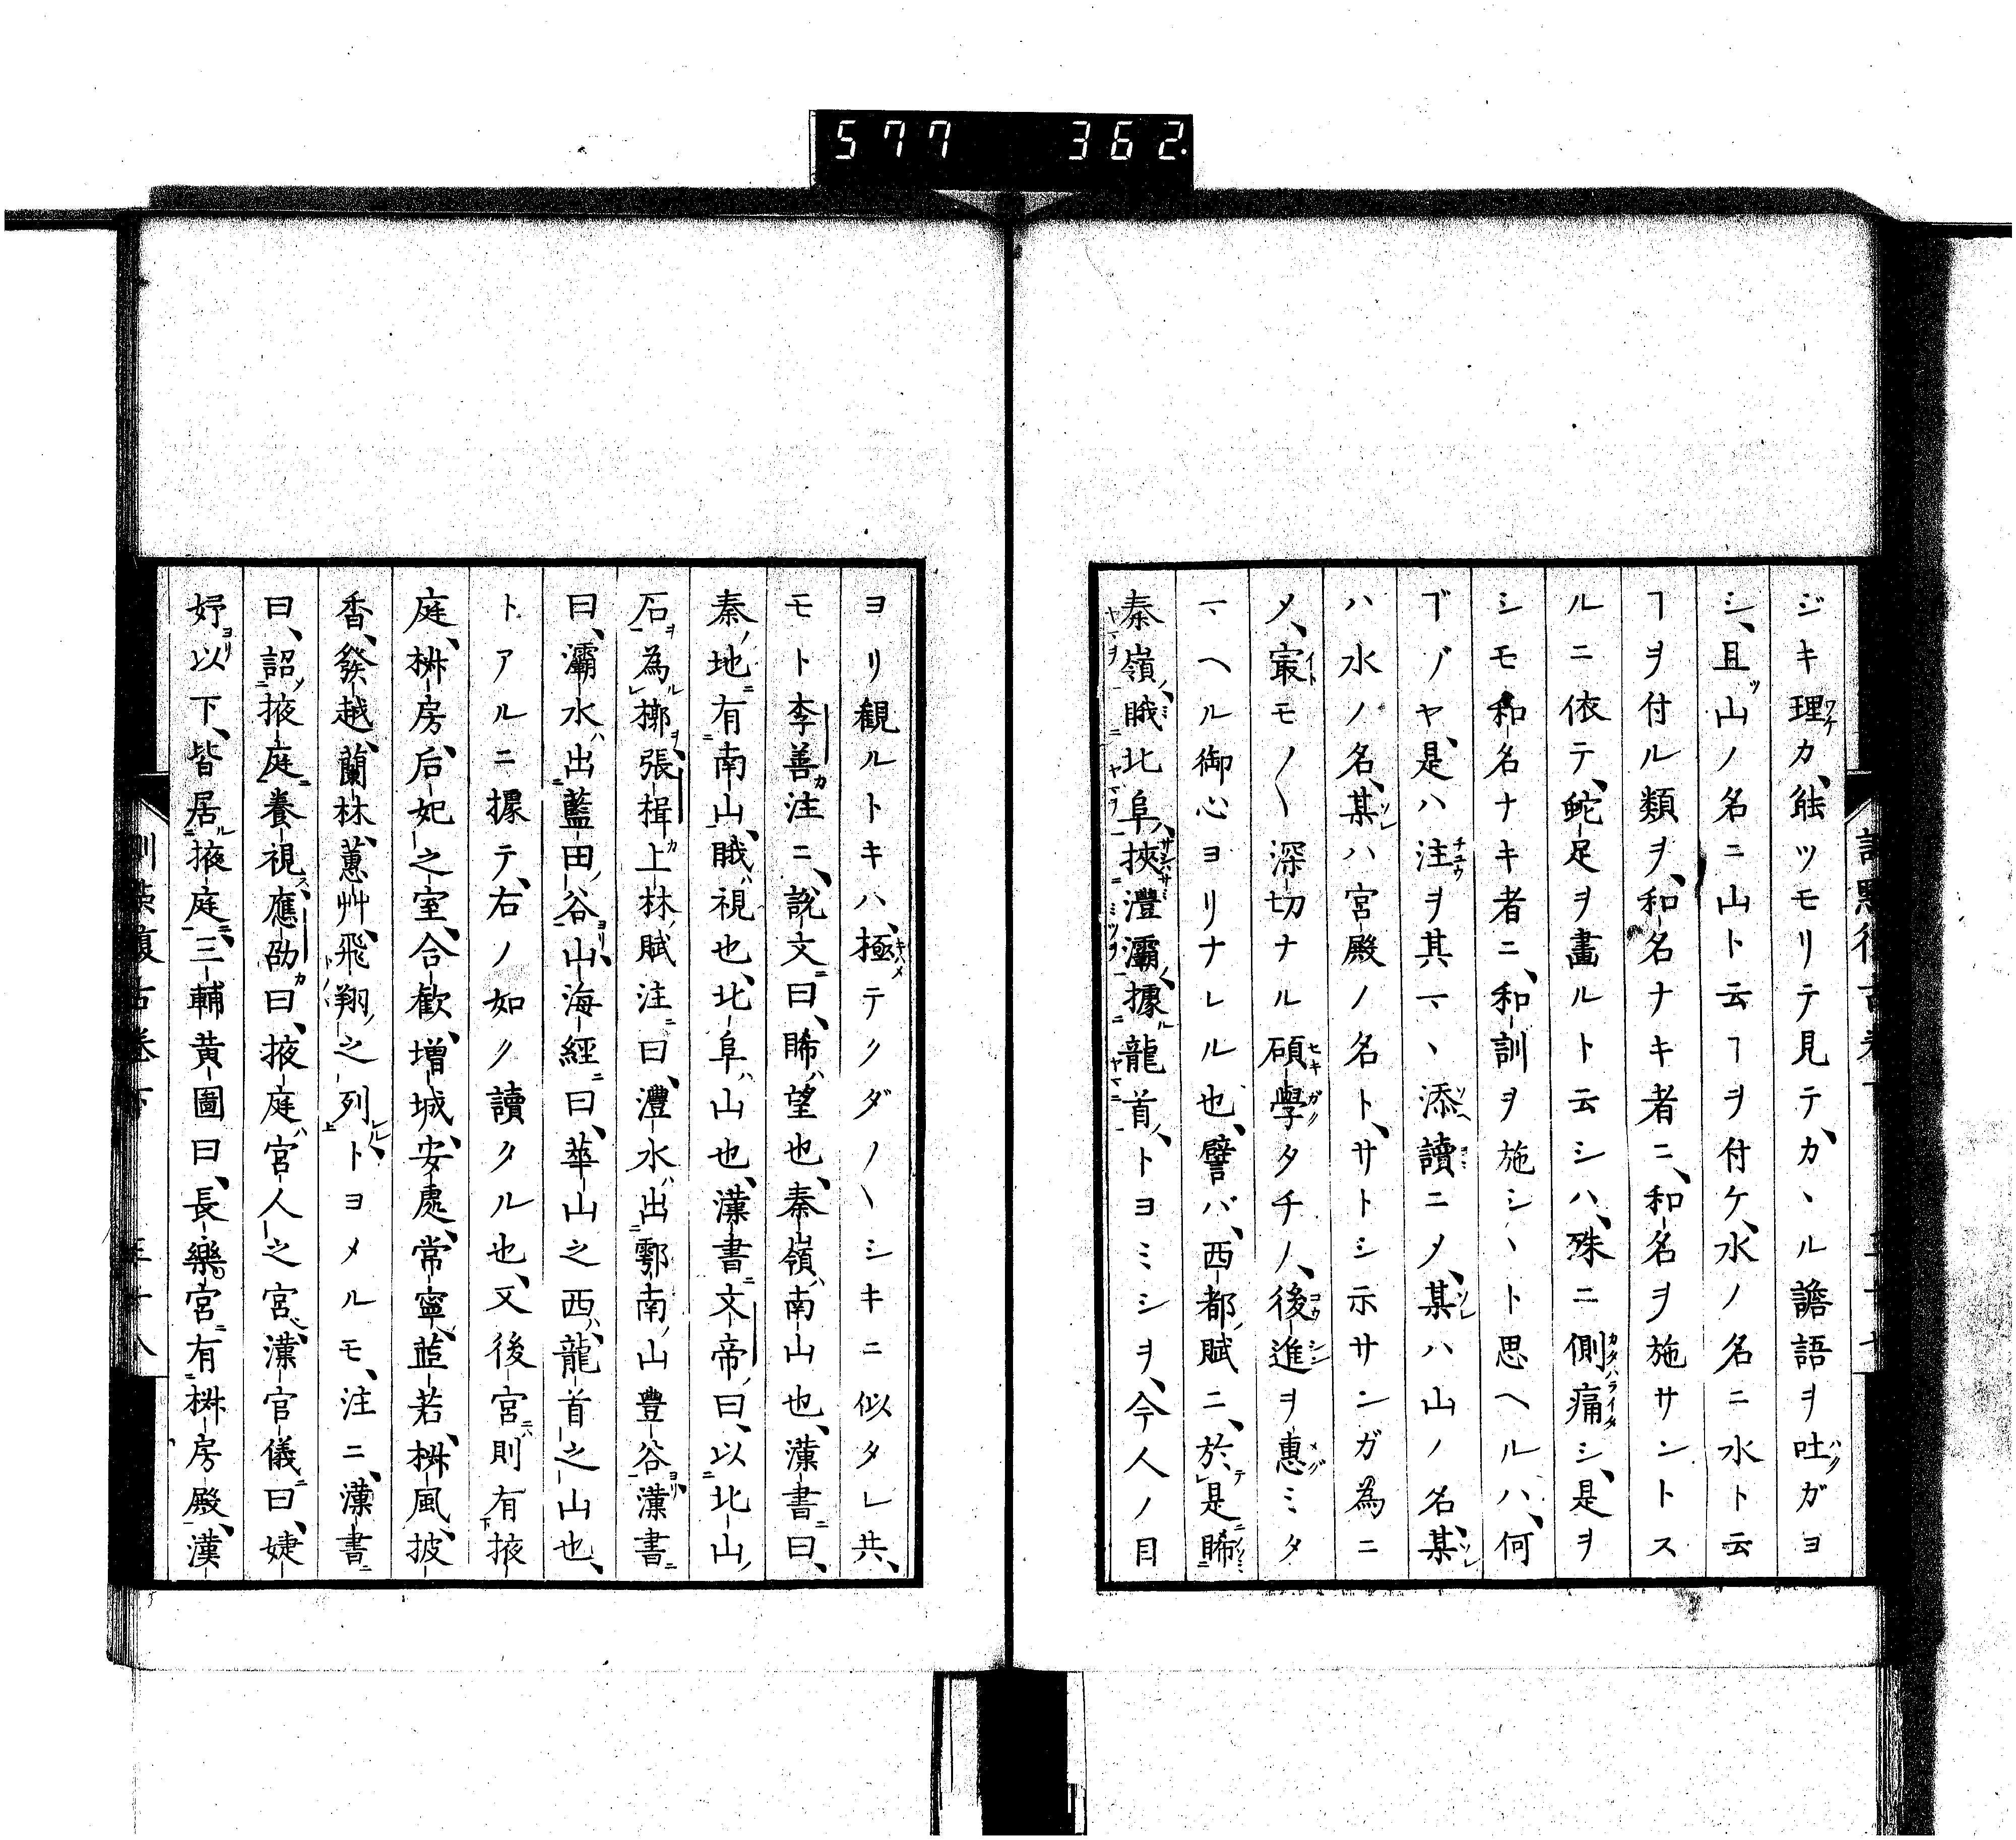 577 362
ジキ理カ、能ツモリテ見テ、カヽル譫語ヲ吐ガヨ
シ、且山ノ名ニ山ト云ヿヲ付ケ、水ノ名ニ水ト云
ヿヲ付ル類ヲ、和名ナキ者ニ、和名ヲ施サントス
ルニ依テ、蛇足ヲ畫ルト云シハ、殊ニ側痛シ、是ヲ
シモ和名ナキ者ニ、和訓ヲ施シヽト思ヘルハ、何
ゴゾヤ、是ハ注ヲ其マヽ添讀ニメ、某ハ山ノ名、某
ハ水ノ名、某ハ宮殿ノ名ト、サトシ示サンガ為ニ
メ、㝡モノ〱深切ナル碩學タチノ、後進ヲ惠ミタ
マヘル御心ヨリナレル也、譬バ、西都賦ニ、於是睎
秦嶺、睋北阜、挾灃灞、據龍首、トヨミシヲ、今人ノ目
ヨリ観ルトキハ、極テクダ〱シキニ似タレ共、
モト李善注ニ、說文曰、睎望也、秦嶺南山也、漢書曰、
秦地有南山、睋視也、北阜山也、漢書文帝曰、以北山
石為槨、張揖上林賦注曰、灃水出鄠南山豐谷、漢書
曰、灞水出藍田谷山、海經曰、華山之西、龍首之山也、
トアルニ據テ、右ノ如ク讀クル也、又後宮則有掖
庭、椒房、后妃之室、合歡、增城、安處、常寧、茝若、椒風、披
香、發越、蘭林、蕙艸、飛翔之列トヨメルモ、注ニ、漢書
曰、詔掖庭養視、應劭曰、掖庭宮人之宮、漢官儀曰、婕
妤以下、皆居掖庭、三輔黄圖曰、長樂宮有椒房殿、漢